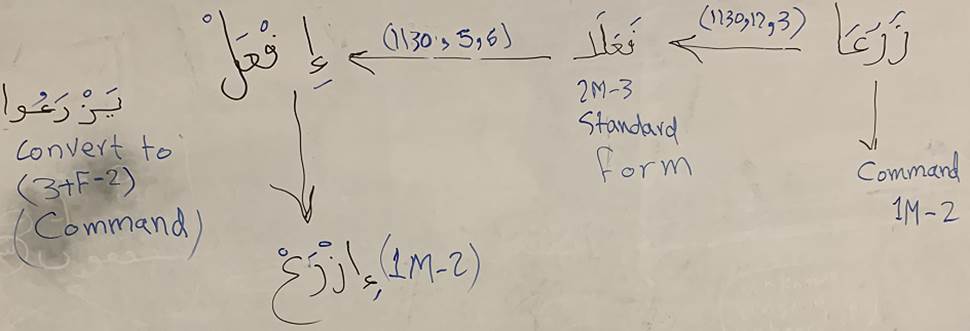 زَرَعَا
(1130,12,3)
فَعَلَا
(1130, 5, 6)
إِفْعَلْ
2M-3
Standard
form
Command
1M-2
إِزْرَعْ (1M-2)
يَزْرَعُوا
Convert to
(3+F-2)
(Command)